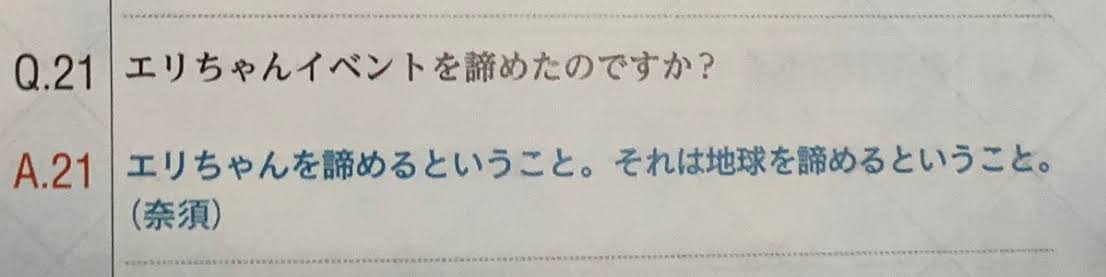 Q.21 エリちゃんイベントを諦めたのですか？
A.21 エリちゃんを諦めるということ。それは地球を諦めるということ。
（奈須）